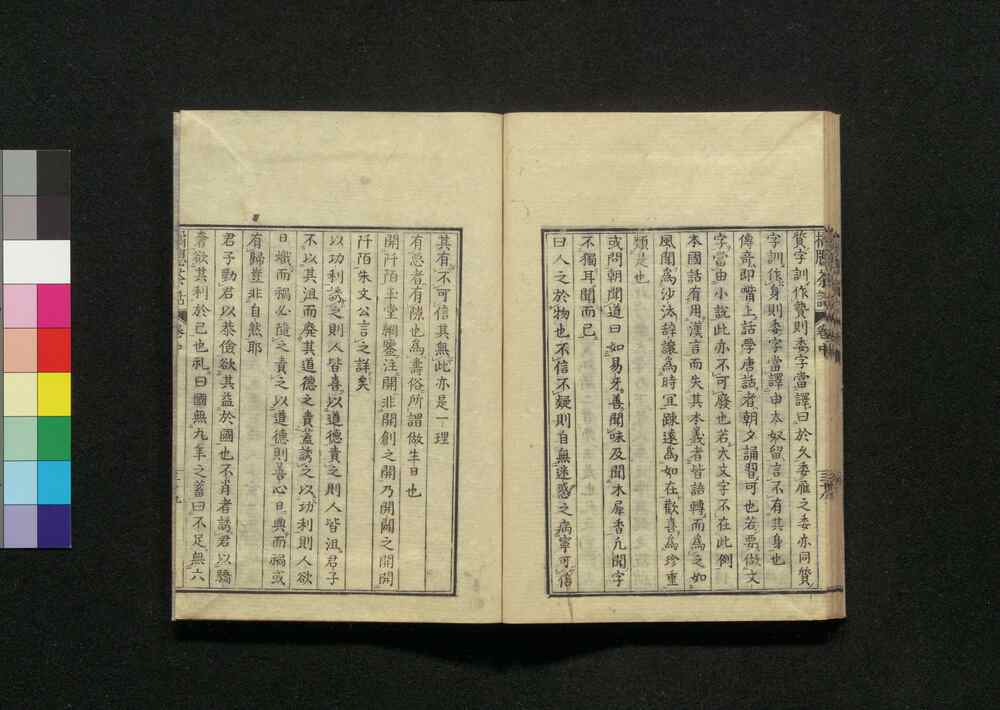 質字訓作贄則委字當譯曰於久委雁之委亦同質
字訓作身則委字當譯由太奴留言不有其身也
傳奇即嘴上話學唐話者朝夕誦習可也若要做文
字當由小說此亦不可廢也若大文字不在此例
本國話有用漢言而失其本義者皆語轉而爲之如
風聞爲沙汰辭讓爲時宜踈遠爲如在歡喜爲珍重
類是也
或問朝聞道曰如易牙善聞味及聞木犀香凢聞字
不獨耳聞而已
曰人之於物也不信不疑則自無迷惑之病寧可信
其有不可信其無此亦是一理
有忌者有隙也爲壽俗所謂做生日也
開阡陌玉堂綱鑒注開非開創之開乃開闢之開開
阡陌朱文公言之詳矣
以功利誘之則人皆喜以道德責之則人皆沮君子
不以其沮而廢其道德之責蓋誘之以功利則人欲
日熾而禍必隨之責之以道德則善心日興而福或
有歸豈非自然耶
君子勸君以恭儉欲其益於國也不肖者誘君以驕
奢欲其利於己也礼曰國無九年之蓄曰不足無六